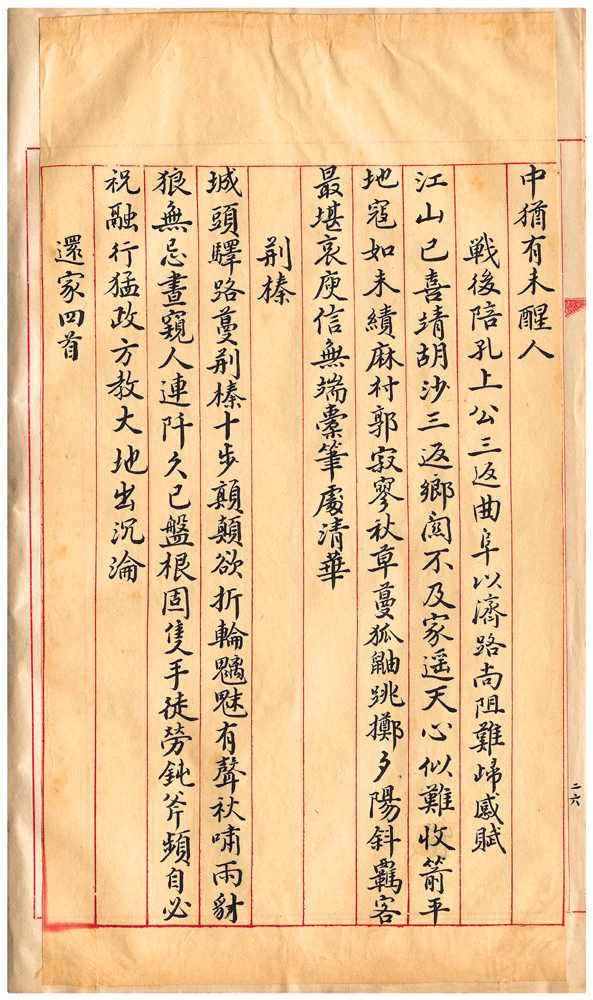 中猶有未醒人
戰後陪孔上公三返曲阜以濟路尚阻難歸感賦
江山已喜靖胡沙三返鄉閭不及家遥天心似難收箭平
地寇如未績麻村郭寂寥秋草蔓狐鼬跳擲夕陽斜羈客
最堪哀庾信無端橐筆處清華
荆榛
城頭驛路蔓荆榛十步顛顛欲折輪魍魅有聲秋嘯雨豺
狼無忌晝窺人連阡久已盤根固隻手徒勞鈍斧頻自必
祝融行猛政方教大地出沉淪
還家四首
二六